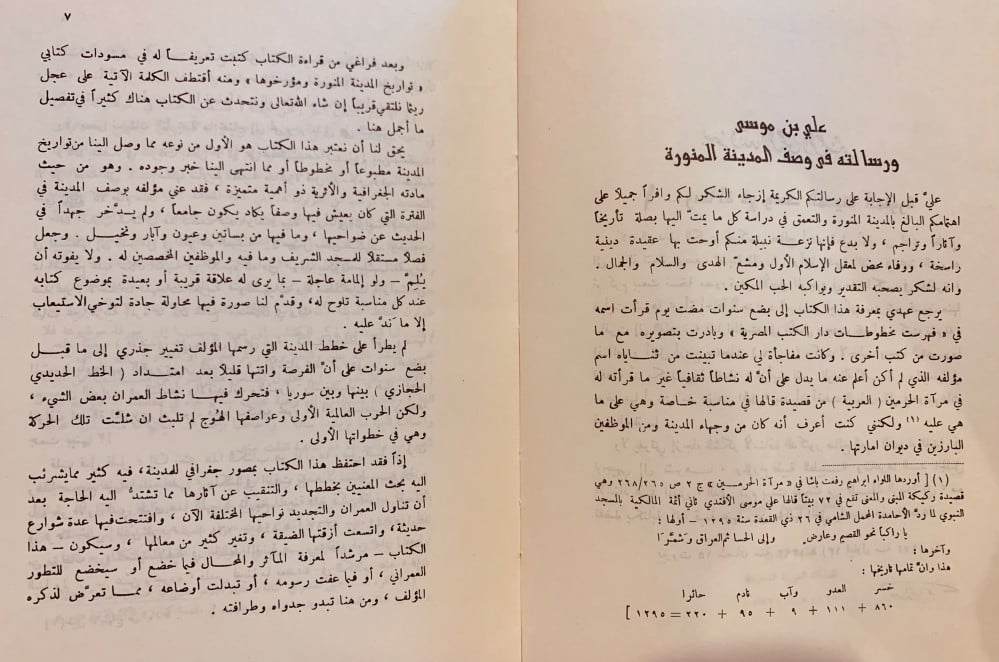 علي بن موسى
ورسالته في وصف المدينة المنورة
عليَّ قبل الإجابة على رسالتكم الكريمة إزجاء الشكر لكم وافراً جميلا على
اهتمامكم البالغ بالمدينة المنورة والتعمق في دراسة كل ما يمتّ اليها بصلة تأريخاً
وآثاراً وتراجم ، ولا بدع فإنها نزعة نبيلة منكم أوحت بها عقيدة دينية
راسخة ، ووفاء محض لمعقل الإسلام الأول ومشعّ الهدى والسلام والجمال .
وانه لشكر يصحبه التقدير ويواكبه الحب المكين .
يرجع عهدي بمعرفة هذا الكتاب إلى بضع سنوات مضت يوم قرأت اسمه
في « فهرست مخطوطات دار الكتب المصرية » وبادرت بتصويره مع ما
صورت من كتب أخرى . وكانت مفاجأة لي عندما تبينت من ثناياه اسم
مؤلفه الذي لم أكن أعلم عنه ما يدل على أنَّ له نشاطاً ثقافياً غير ما قرأته له
في مرآة الحرمين ( العربية ) من قصيدة قالها في مناسبة خاصة وهي على ما
هي عليه (١) ولكنني كنت أعرف أنه كان من وجهاء المدينة ومن الموظفين
البارزين في ديوان امارتها .
(١) [ أوردها اللواء ابراهيم رفعت باشا في « مرآة الحرمين » ج ٢ ص ٢٦٨/٢٦٥ وهي
قصيدة ركيكة المبنى والمعنى تقع في ٧٢ بيتاً قالها علي موسى الأفندي ثاني أئمة المالكية بالمسجد
النبوي لما ردَّ الأحامدة المحمل الشامي في ٢٦ ذي القعدة سنة ١٢٩٥ - أولها :
يا راكباً نحو القصيم وعارض وإلى الحسا ثم العراق وشمَّرا
وآخرها :
هذا وانَّ تمامها تاريخها :
خسر العدو وآب نادم حائرا
٨٦٠ + ١١١ + ٩ + ٩٥ + ٢٢٠ = ١٢٩٥ ]
٧
وبعد فراغي من قراءة الكتاب كتبت تعريفاً له في مسودات كتابي
« تواريخ المدينة المنورة ومؤرخوها » ومنه أقتطف الكلمة الآتية على عجل
ريثما نلتقي قريباً إن شاء الله تعالى ونتحدث عن الكتاب هناك كثيراً في تفصيل
ما أجمل هنا .
يحق لنا أن نعتبر هذا الكتاب هو الأول من نوعه مما وصل الينا من تواريخ
المدينة مطبوعاً أو مخطوطاً أو مما انتهى الينا خبر وجوده . وهو من حيث
مادته الجغرافية والأثرية ذو أهمية متميزة ، فقد عني مؤلفه بوصف المدينة في
الفترة التي كان يعيش فيها وصفاً يكاد يكون جامعاً ، ولم يدَّخر جهداً في
الحديث عن ضواحيها ، وما فيها من بساتين وعيون وآبار ونخيل . وجعل
فصلا مستقلا للمسجد الشريف وما فيه والموظفين المخصصين له . ولا يفوته أن
يُلِمَّ – ولو إلمامة عاجلة – بما يرى له علاقة قريبة أو بعيدة بموضوع كتابه
عند كل مناسبة تلوح له ، وقدَّم لنا صورة فيها محاولة جادة لتوخي الاستيعاب
إلا ما ندَّ عليه .
لم يطرأ على خطط المدينة التي رسمها المؤلف تغيير جذري إلى ما قبل
بضع سنوات على أنَّ الفرصة واتتها قليلاً بعد امتداد ( الخط الحديدي
الحجازي ) بينها وبين سوريا ، فتحرك فيها نشاط العمران بعض الشيء ،
ولكن الحرب العالمية الأولى وعواصفها الهُوج لم تلبث ان شلَّت تلك الحركة
وهي في خطواتها الأولى .
إذاً فقد احتفظ هذا الكتاب بمصور جغرافي للمدينة، فيه كثير مما يشرئب
اليه بحث المعنيين بخططها ، والتنقيب عن آثارها مما تشتدّ اليه الحاجة بعد
أن تناول العمران والتجديد نواحيها المختلفة الآن ، وافتتحت فيها عدة شوارع
حديثة، واتسعت أزقتها الضيقة ، وتغير كثير من معالمها ، وسيكون – هذا
الكتاب – مرشداً لمعرفة المآثر والمحال فيما خضع أو سيخضع للتطور
العمراني ، أو فيما عفت رسومه ، أو تبدلت أوضاعه ، مما تعرَّض لذكره
المؤلف ، ومن هنا تبدو جدواه وطرافته .